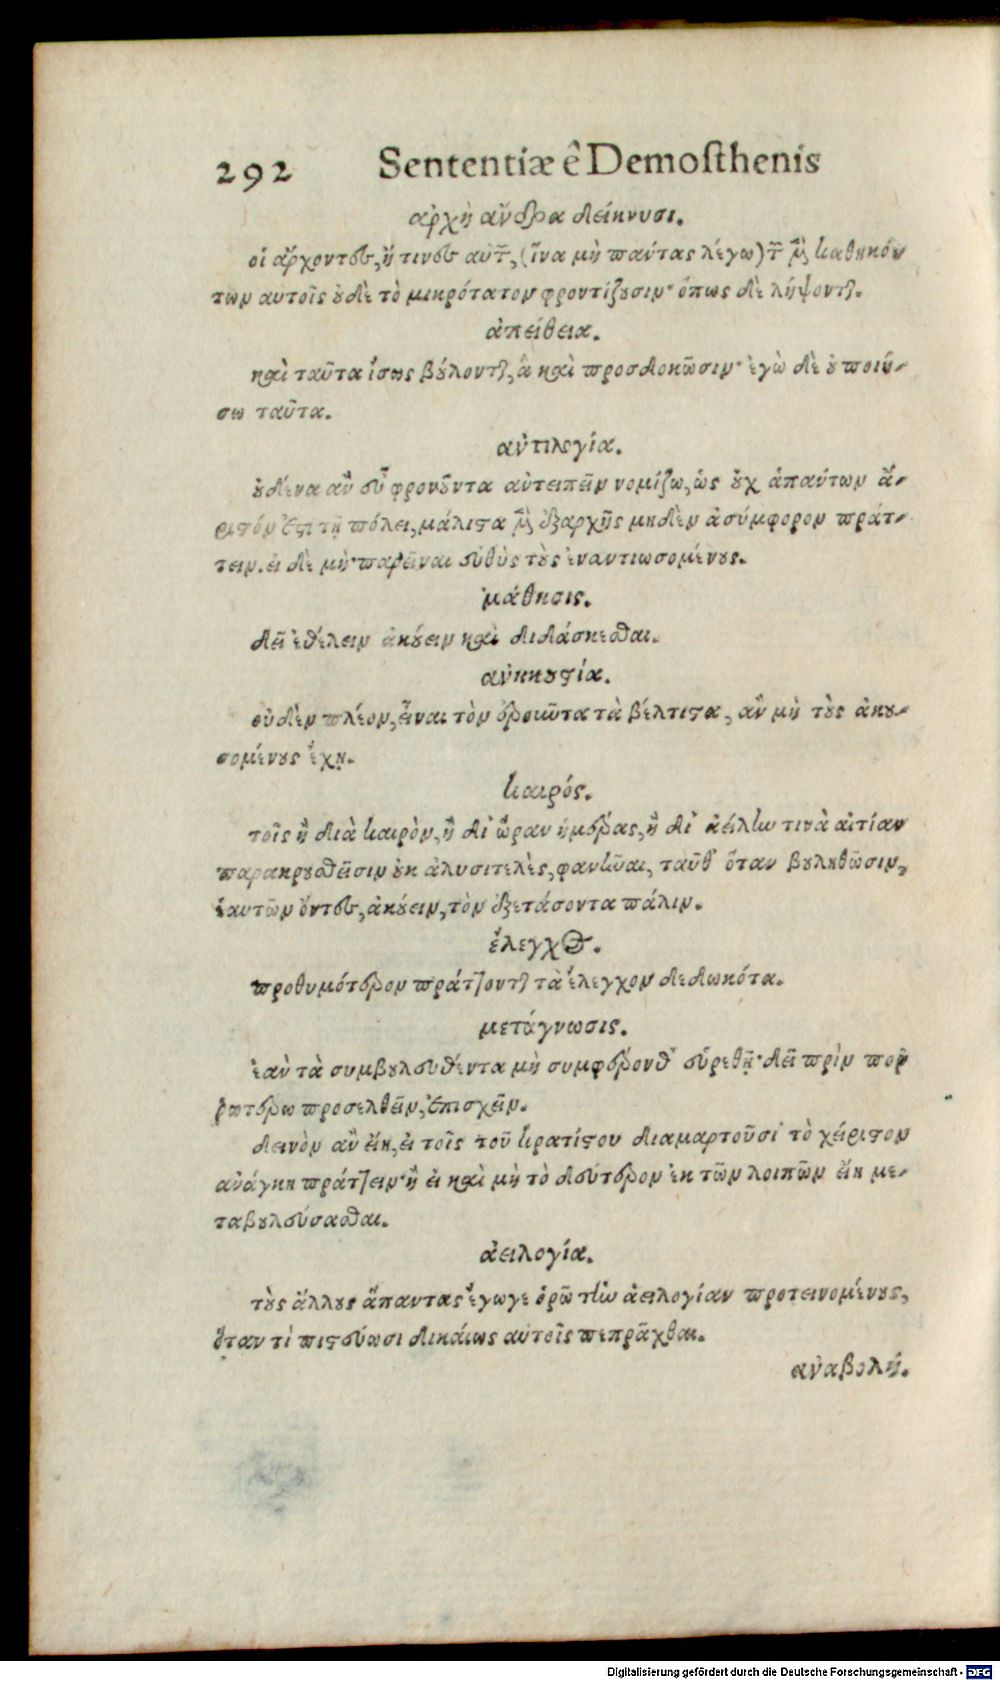 292 Sententiæ ê Demosthenis
ἀρχὴ ἄνδρα δείκνυσι.
οἱ ἄρχοντες, ἤ τινες αὐτ, (ἵνα μὴ πάντας λέγω) τ μ καθηκόν
των αυτοῖς ȣδὲ τὸ μικρότατον φροντίζȣσιν· ὁπως δὲ λήψοντ.
ἀπείθεια.
καὶ ταῦτα ἴσως βȣ́λοντ, ἃ καὶ προσδοκῶσιν· ἐγὼ δὲ ȣ̓ ποιή-
σω ταῦτα.
ἀντιλογία.
ȣ̓δένα ἂν εὖ φρονȣ͂ντα ἀντειπεῖν νομίζω, ὡς ȣ̓χ ἁπάντων ἄ-
ριστόν ἐστι τῇ πόλει, μάλιστα μ ἐξαρχῆς μηδὲν ἀσύμφορον πράτ-
τειν. εἰ δὲ μὴ· παρεῖναι εὐθὺς τȣ̀ς ἐναντιωσομένȣς.
μάθησις.
δεῖ ἐθέλειν ἀκȣ́ειν καὶ διδάσκεσθαι.
ἀνηκȣστία.
οὐδὲν πλέον, εἶναι τὸν ἐροιῶτα τὰ βέλτιστα, ἂν μὴ τȣ̀ς ἀκȣ-
σομένȣς ἔχῃ.
καιρός.
τοῖς ἢ διὰ καιρὸν, ἢ δι᾽ ὥραν ἡμέρας, ἢ δι᾽ ἀέλην τινὰ αἰτίαν
παρακρȣσθεῖσιν ȣ̓κ ἀλυσιτελὲς, φανῆναι, ταῦθ᾽ ὅταν βȣληθῶσιν,
ἑαυτῶν ὄντες, ἀκȣ́ειν, τὸν ἐξετάσοντα πάλιν.
ἔλεγχος.
προθυμότερον πράττοντ τὰ ἔλεγχον δεδωκότα.
μετάγνωσις.
ἐὰν τὰ συμβȣλευθέντα μὴ συμφέρονθ᾽ εὑρεθῇ· δεῖ πρὶν πορ
ρωτέρω προσελθεῖν, ἐπισχεῖν.
δεινὸν ἂν εἴη, εἰ τοῖς τοῦ κρατίστου διαμαρτοῦσι τὸ χείριστον
ἀνάγκη πράττειν· ἢ εἰ καὶ μὴ τὸ δεύτερον ἐκ τῶν λοιπῶν εἴη με-
ταβȣλεύσασθαι.
ἀειλογία.
τȣ̀ς ἄλλȣς ἅπαντας ἔγωγε ὁρῶ τὴν ἀειλογίαν προτεινομένȣς,
ὅταν τὶ πιστεύωσι δικαίως αὐτοῖς πεπρᾶχθαι.
ἀναβολή.
Digitalisierung gefördert durch die Deutsche Forschungsgemeinschaft - DFG